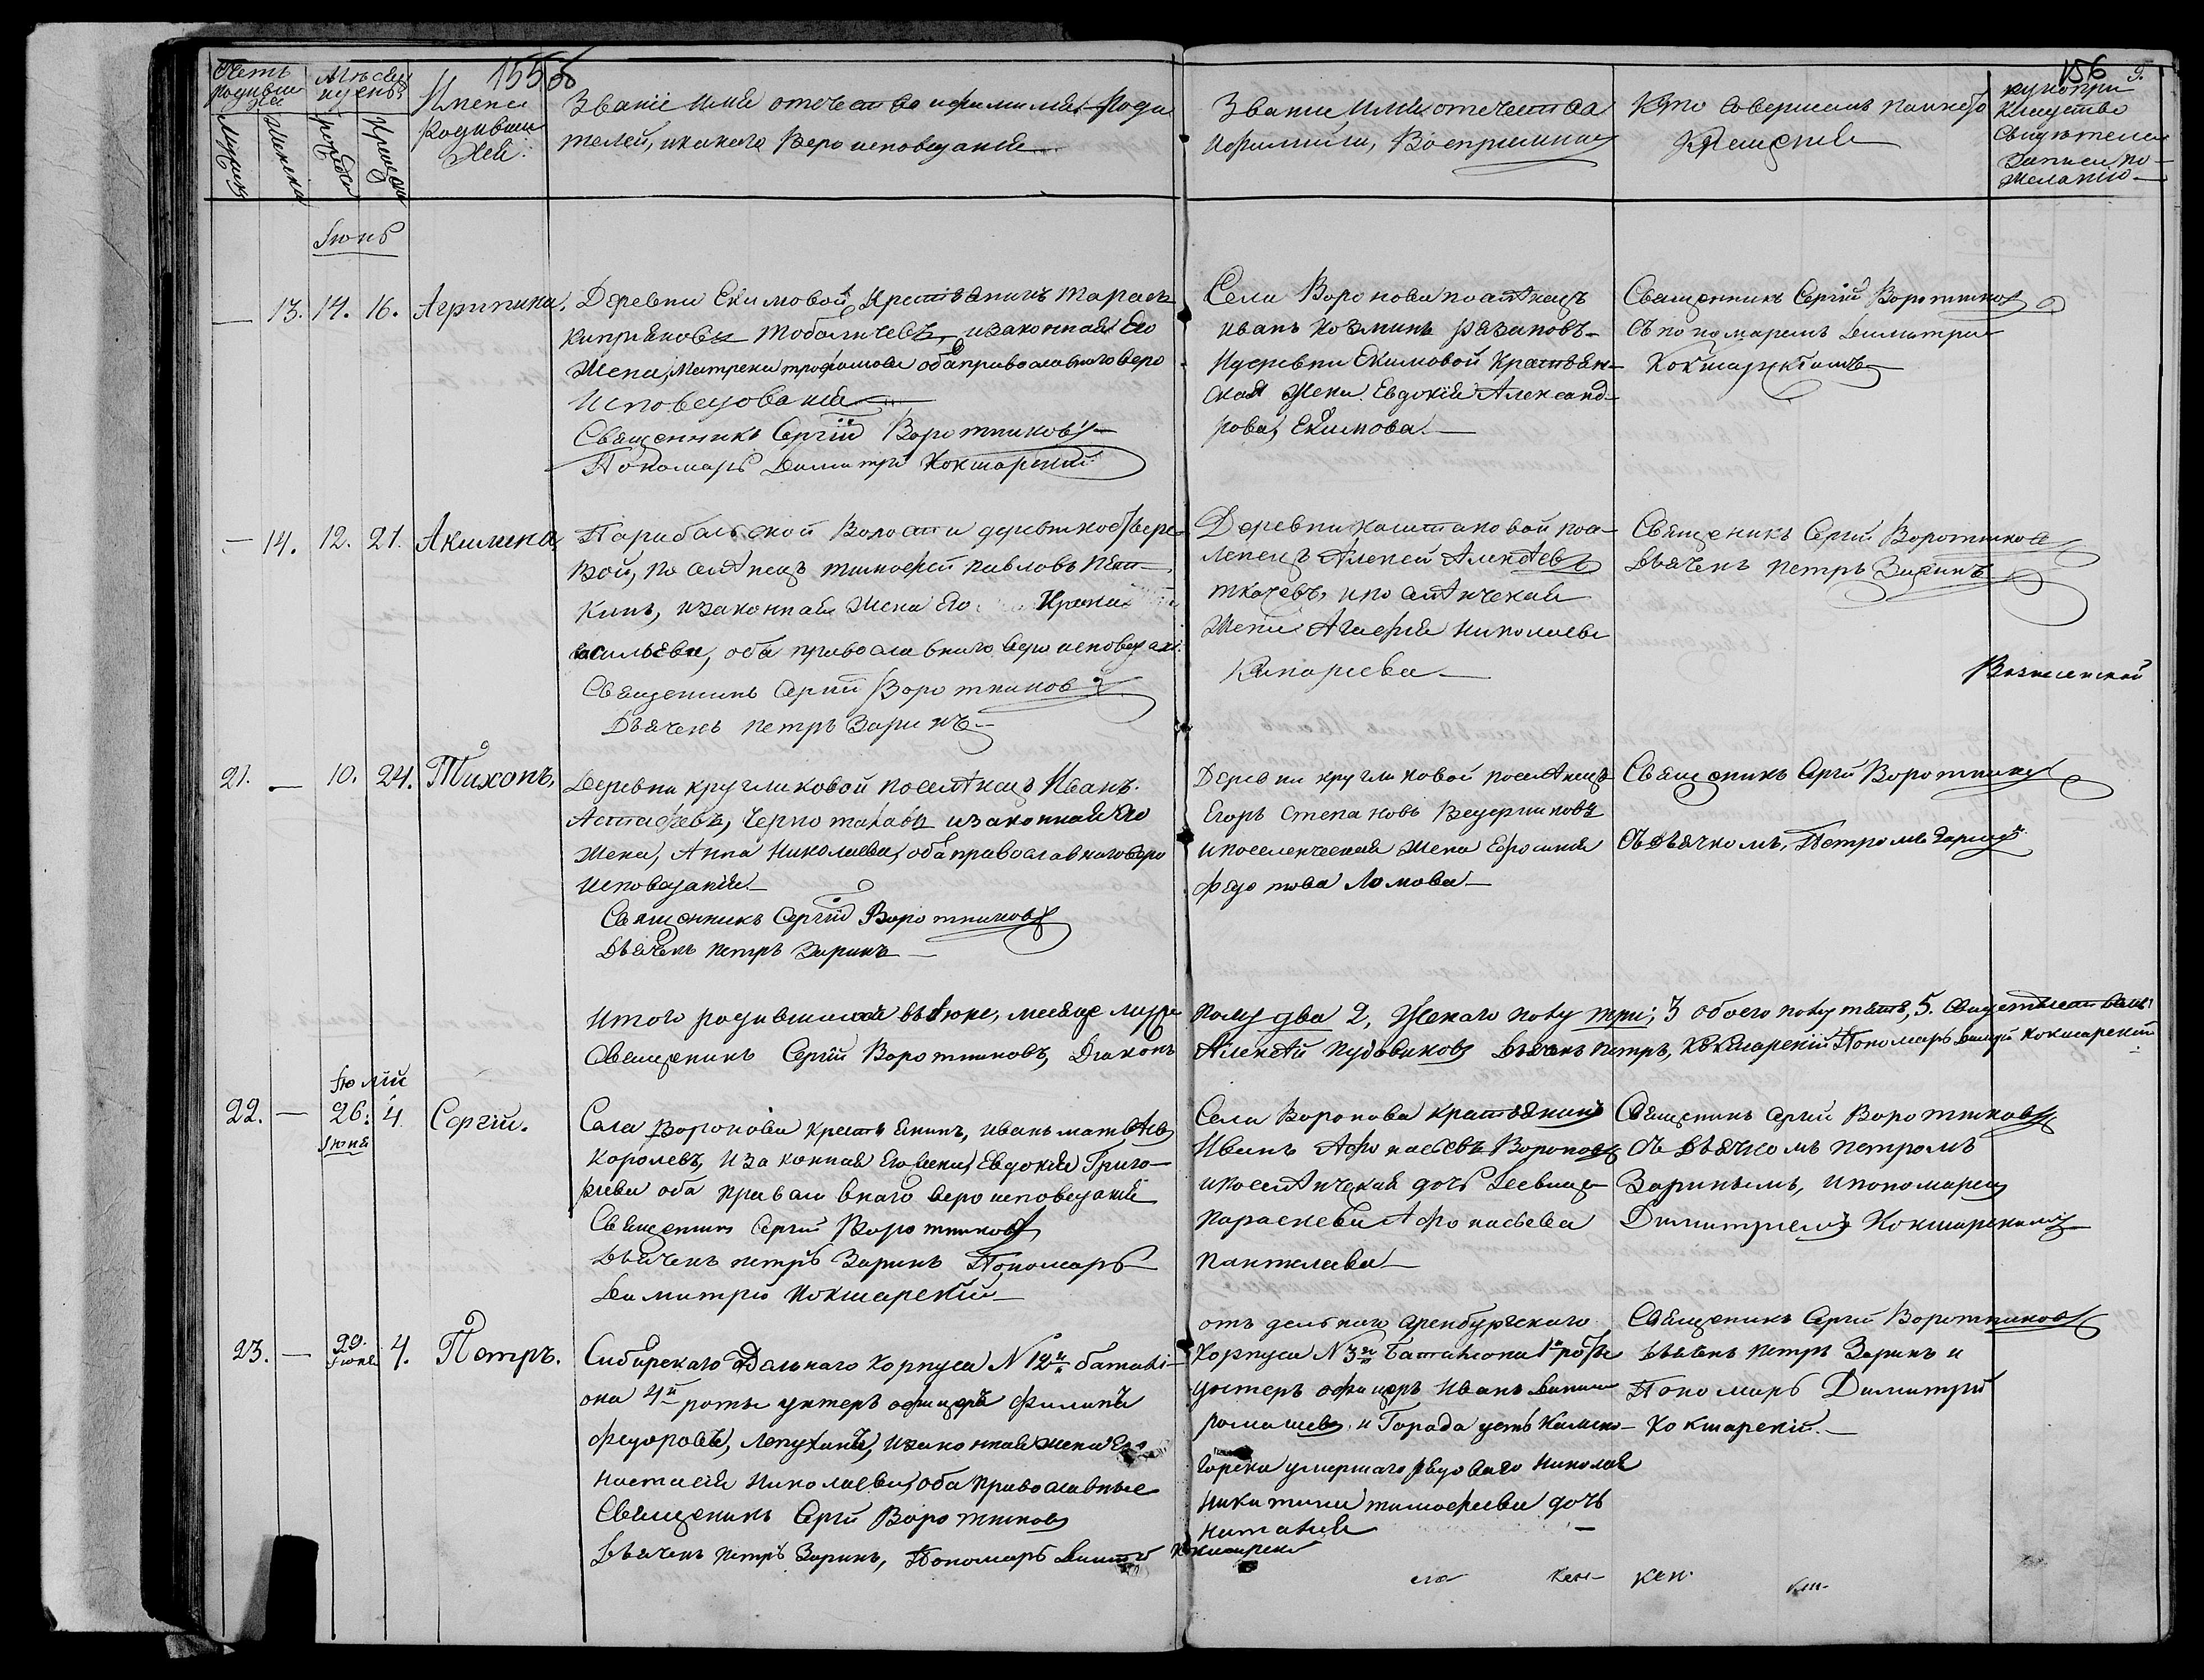 155 об
156
Счетъ родивших ся
Мѣсяцъ и день
Имена Родивших ся.
Званіе имя отечество и фамилія Роди
телей, и какого Вероисповеданія
Мужск
Женска
рожде
Крещен
Званіе имя отечества
и фамилія, Воспріемник
Кто Совершалъ таинство
Крещенія
рукопри
кладство
Свидѣтелей
Записи по
желанію
Іюнь
— 13. 14. 16. Агрипина.
Деревни Екимовой Крестьянинъ Тарасъ
Кипріяновъ Тобаличевъ, и законная Его
Жена, Матрена трофимова оба православнаго веро
Исповедованія
Священникъ Сергій Воротниковъ
Пономарь Димитрі Кокшарскій
Села Воронова поселѣнецъ
иванъ козминъ рязановъ
и деревни Екимовой Крестьян-
ская жена Евдокія Александ-
рова, Екимова.
Священникъ Сергій Воротников
съ пономаремъ Димитрие
Кокшарскимъ
— 14. 12. 21. Акилина
Парабельской Волости деревни
вой, поселѣнецъ тимофей павловъ Пет-
кинъ, и законная Жена Его Ирина
васильева, оба православнаго вероисповедан.
Священникъ Сергій Воротников
Дьячекъ петръ Заринъ
Деревни Каштаковой посе-
ленецъ Алексей Алексѣев
ткачевъ, и поселѣнческая
Жена Агафія николаева
Священикъ Сергій Воротников
Дьячекъ петръ Заринъ
21. — 10. 24. Тихонъ.
Деревни кругликовой поселѣнецъ Иванъ
Астафьевъ, и законная Его
Жена, Анна Николаева, оба православнаго веро
исповеданія
Священникъ Сергій Воротниковъ
Дьячекъ петръ Заринъ
Деревни кругликовой поселѣнецъ
Егоръ степановъ Ведерниковъ
и поселенческая жена Ефросинія
федотова Ломова
Священикъ Сергій Воротников
Съ дьячкомъ, Петромъ Зарин
Итого родившихся въ Іюне, месяце муж
полу два 2, Женскаго полу три; 3 обоего полу пять, 5.
Священикъ Сергій Воротниковъ, Діаконъ
Алексѣй Пудовиков Дьячекъ петръ, Кокшарскій Пономарь Димитрі Кокшарскій
Іюлій
22. — 26. 4 Сергій.
Іюня
Села Воронова крестьянинъ, иванъ матвѣевъ
королевъ, и законная Его жена Евдокія Григо-
рьева оба православнаго вероисповеданія
Священикъ Сергій Воротников
Дьячекъ петръ Заринъ Пономарь
Димитрій Кокшарскій
Села Воронова крестьянинъ
Иванъ Афонасьевъ Воронов
и поселѣнческая дочь девица
параскева Афонасьева
Священикъ Сергій Воротников
съ дьячкомъ петромъ
Заринымъ, и пономарем
Димитриемъ Кокшарскимъ
23. — 29. 4. Петръ.
Іюня
Сибирскаго Корпуса N 12й баталі-
она 4й роты унтеръ офицеръ филипъ
федоровъ, Лопухинъ, и законная жена Его
настасія николаева, оба православные
Священикъ Сергій Воротников
Дьячекъ петръ Заринъ, Пономарь Димит Кокшарск
отдельнаго Оренбургскаго
Корпуса N 3го Баталіона 1й роты
унтеръ офицеръ Иванъ
ромашев, и Города усть Камено-
горска умершаго рядоваго Николая
никитина тимофеева дочь
наталія
Священикъ Сергій Воротников
дьячекъ петръ Заринъ и
Пономарь Димитрій
Кокшарскій.